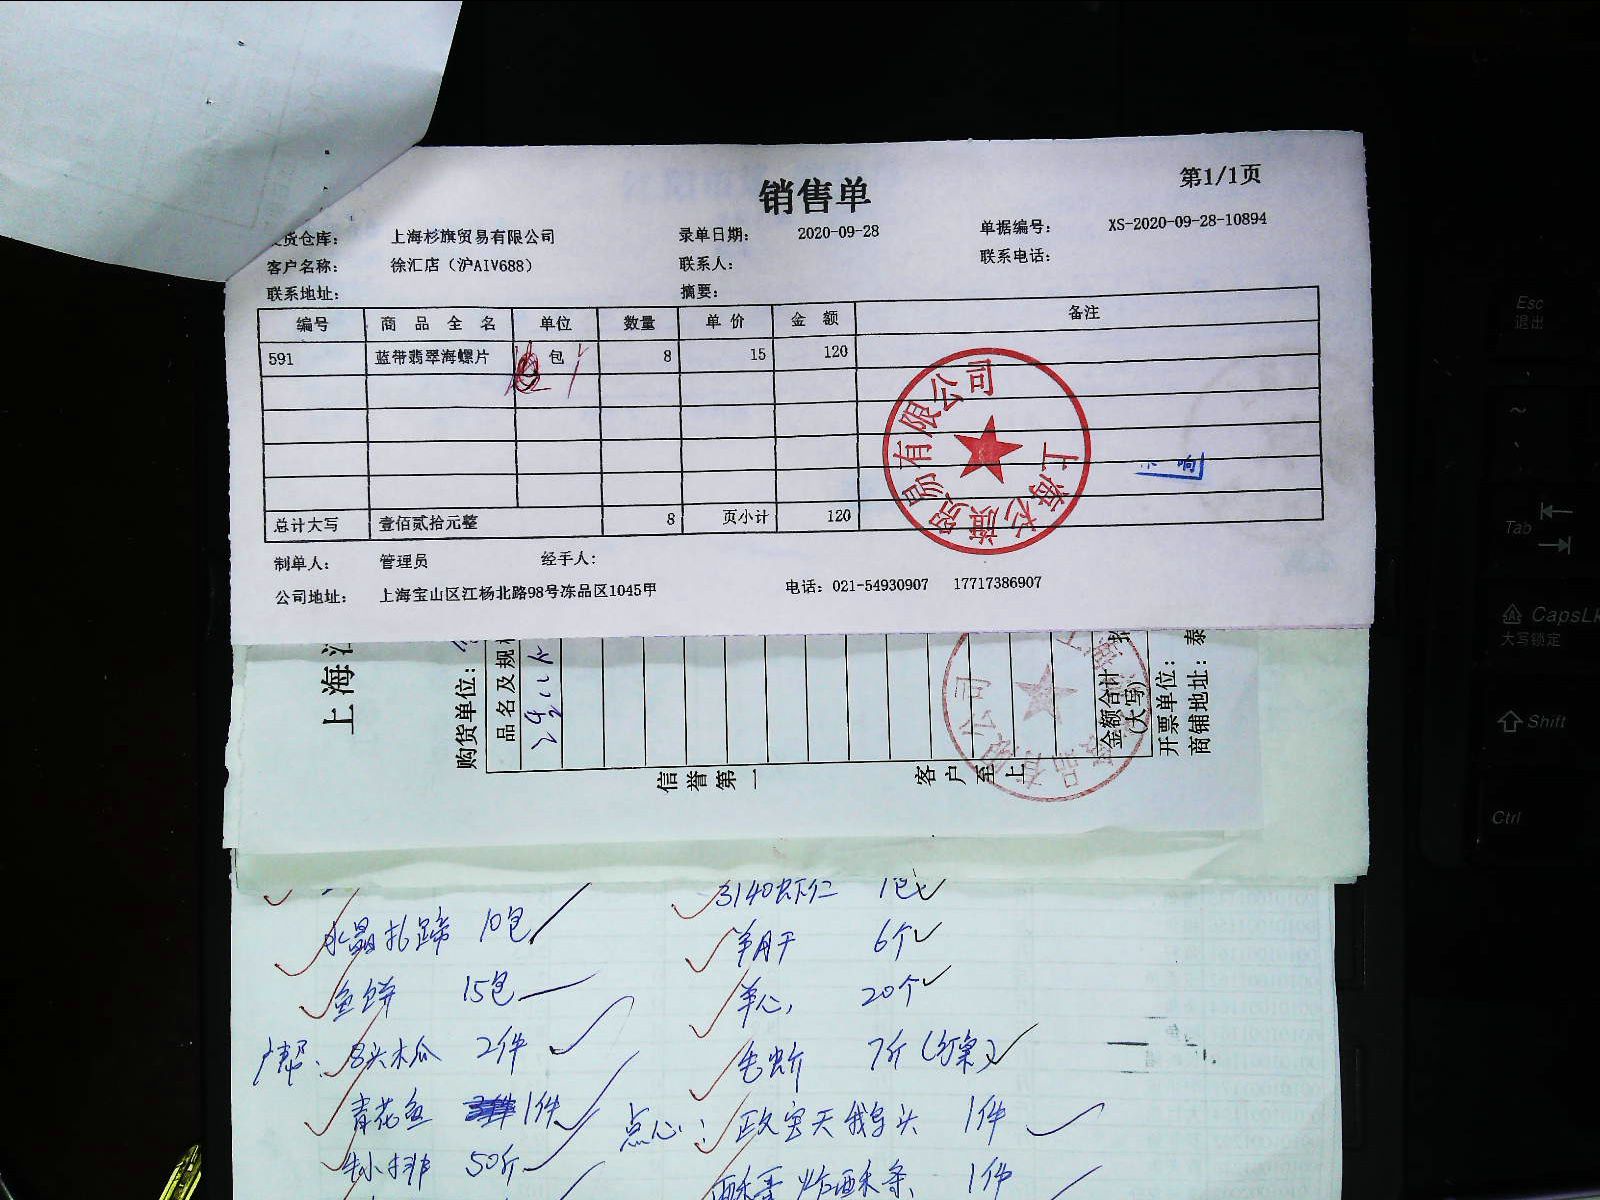 销售单
第1/1页
货仓库: 上海杉旗贸易有限公司 录单日期: 2020-09-28 单据编号: XS-2020-09-28-10894
客户名称: 徐汇店（沪AIV688） 联系人: 联系电话:
联系地址: 摘要:
编号 商品全名 单位 数量 单价 金额 备注
591 蓝带翡翠海螺片 包 8 15 120
总计大写 壹佰贰拾元整 8 页小计 120
上海杉旗贸易有限公司
制单人: 管理员 经手人:
公司地址: 上海宝山区江杨北路98号冻品区1045甲 电话: 021-54930907 17717386907
上海
购货单位:
品名及规
金额合计
(大写)
开票单位:
商铺地址: 泰
信誉第一 客户至上
3140虾仁 1包
水晶扎蹄 10包
羊肝 6个
鱼饼 15包
羊心 20个
广帮: 8头木瓜 2件
毛蚧 7斤
青花鱼 1件
点心: 1件
牛小排 50斤
炸酥条 1件
Esc
退出
Tab
CapsL
大写锁定
Shift
Ctrl